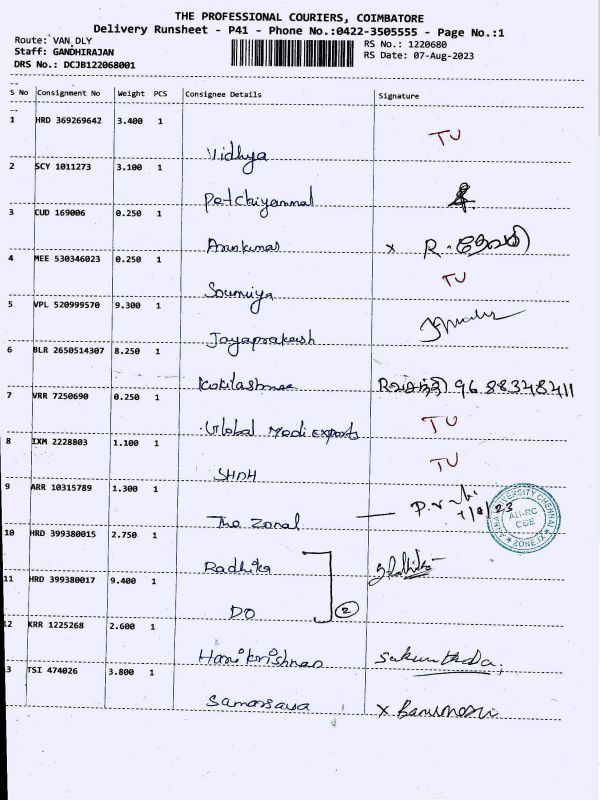 THE PROFESSIONAL COURIERS, COIMBATORE
Delivery Runsheet - P41 - Phone No.:0422-3505555 - Page No.:1
Route: VAN_DLY RS No.: 1220680
Staff: GANDHIRAJAN RS Date: 07-Aug-2023
DRS No.: DCJB122068001
S No Consignment No Weight PCS Consignee Details Signature
1 HRD 369269642 3.400 1
Vidhya TU
2 SCY 1011273 3.100 1
Petchiyammal
3 CUD 169006 0.250 1
Arunkumar x R.
4 MEE 530346023 0.250 1
Soumiya TU
5 VPL 520999570 9.300 1
Jayaprakash
6 BLR 2650514307 8.250 1
9688348411
7 VRR 7250690 0.250 1
Global Medi exports TU
8 IXM 2228803 1.100 1
SHDH TU
9 ARR 10315789 1.300 1
The Zonal
ANNA UNIVERSITY CHENNAI
AU-RC
CBE
ZONE IX
10 HRD 399380015 2.750 1
Radhika
11 HRD 399380017 9.400 1
DO 2
12 KRR 1225268 2.600 1
Harikrishnan
3 TSI 474026 3.800 1
x